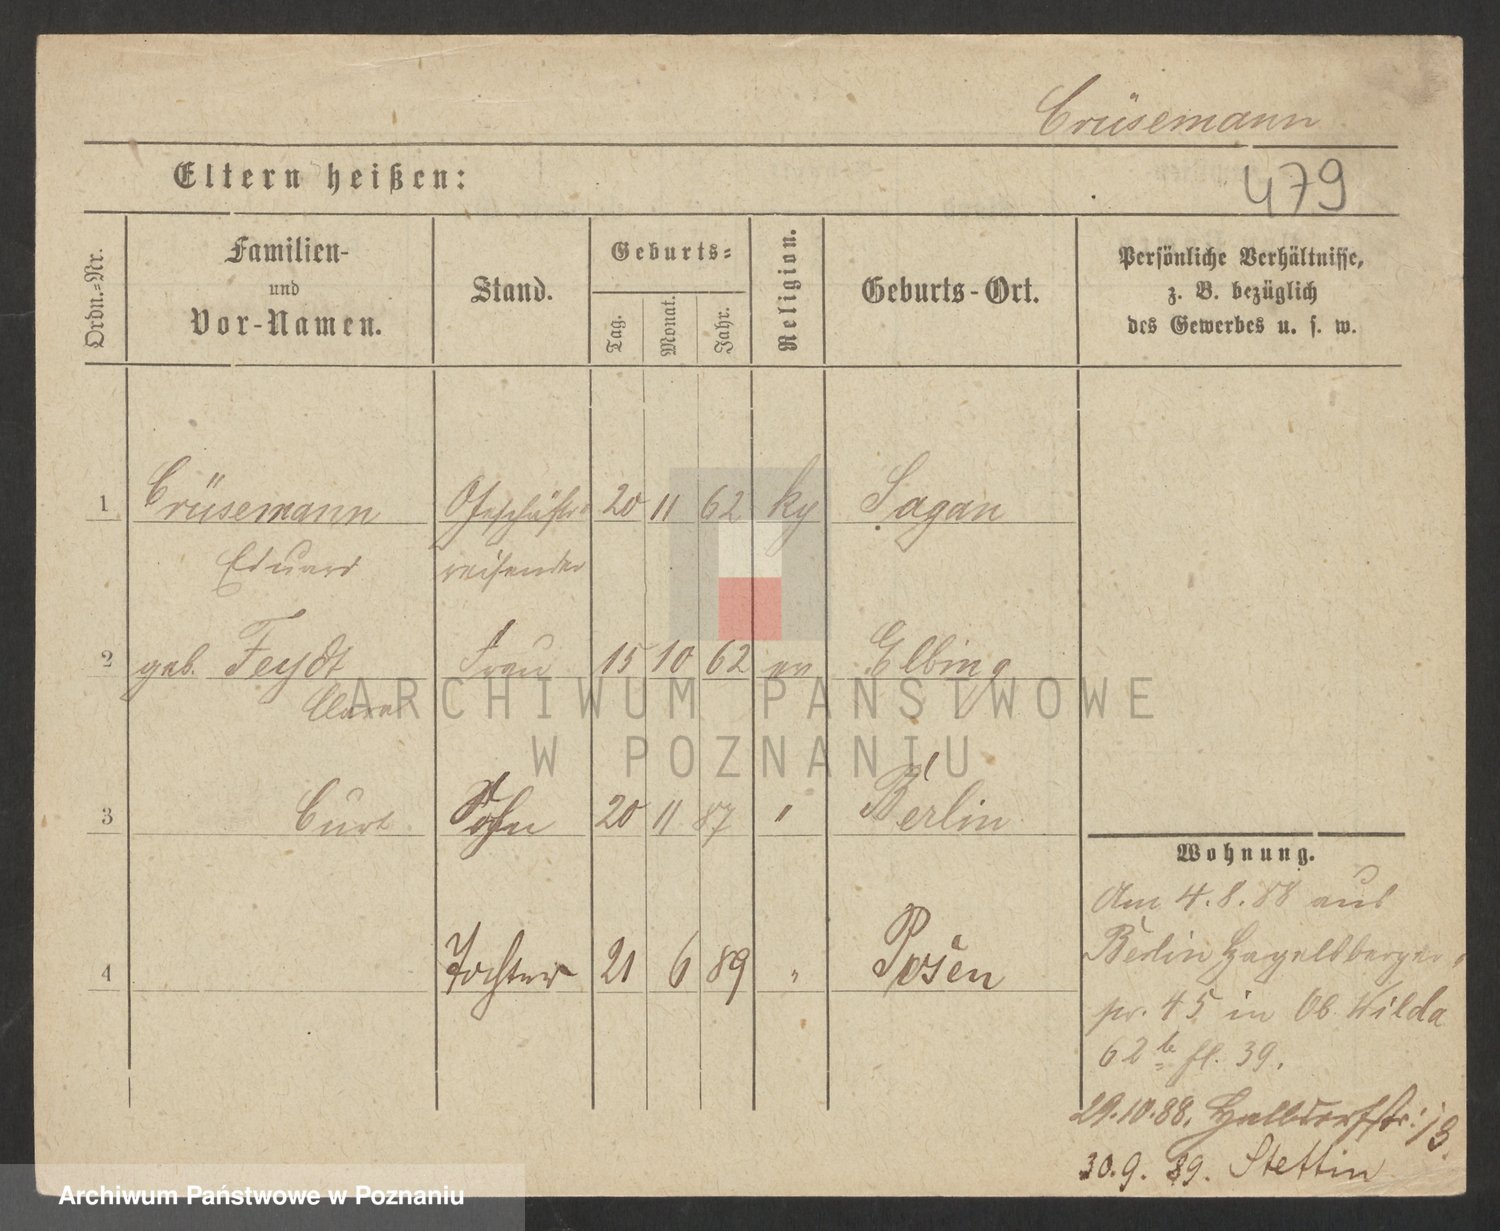 Crüsemann
479
Eltern heißen:
Ordn.-Nr.
Familien-
und
Vor-Namen.
Stand.
Geburts-
Tag.
Monat.
Jahr.
Religion.
Geburts-Ort.
Persönliche Verhältnisse,
z. B. bezüglich
des Gewerbes u. s. w.
1 Crüsemann Geschäfts 20 11 62 Sagan
Eduard reisender
2 geb. Feydt Frau 15 10 62 ev Elbing
Clara
ARCHIWUM PAŃSTWOWE
W POZNANIU
3 Curt Sohn 20 11 87 " Berlin
4 Tochter 21 6 89 " Posen
Wohnung.
Am 4.8.88 aus
Berlin Hagelsberger
45 in Ob. Wilda
62 b fl. 39.
29.10.88. Halbdorfstr: 13
30.9.89. Stettin
Archiwum Państwowe w Poznaniu